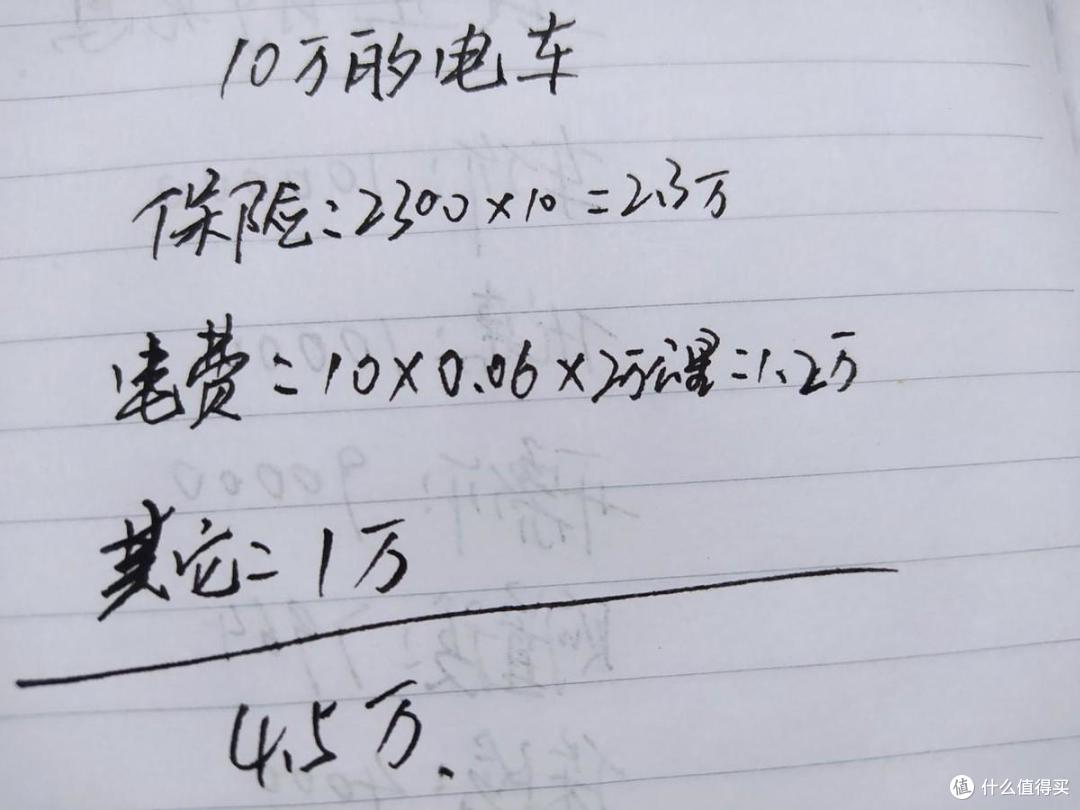 10万的电车
保险:2300×10=2.3万
电费=10×0.06×2万公里=1.2万
其它=1万
4.5万.
值 什么值得买